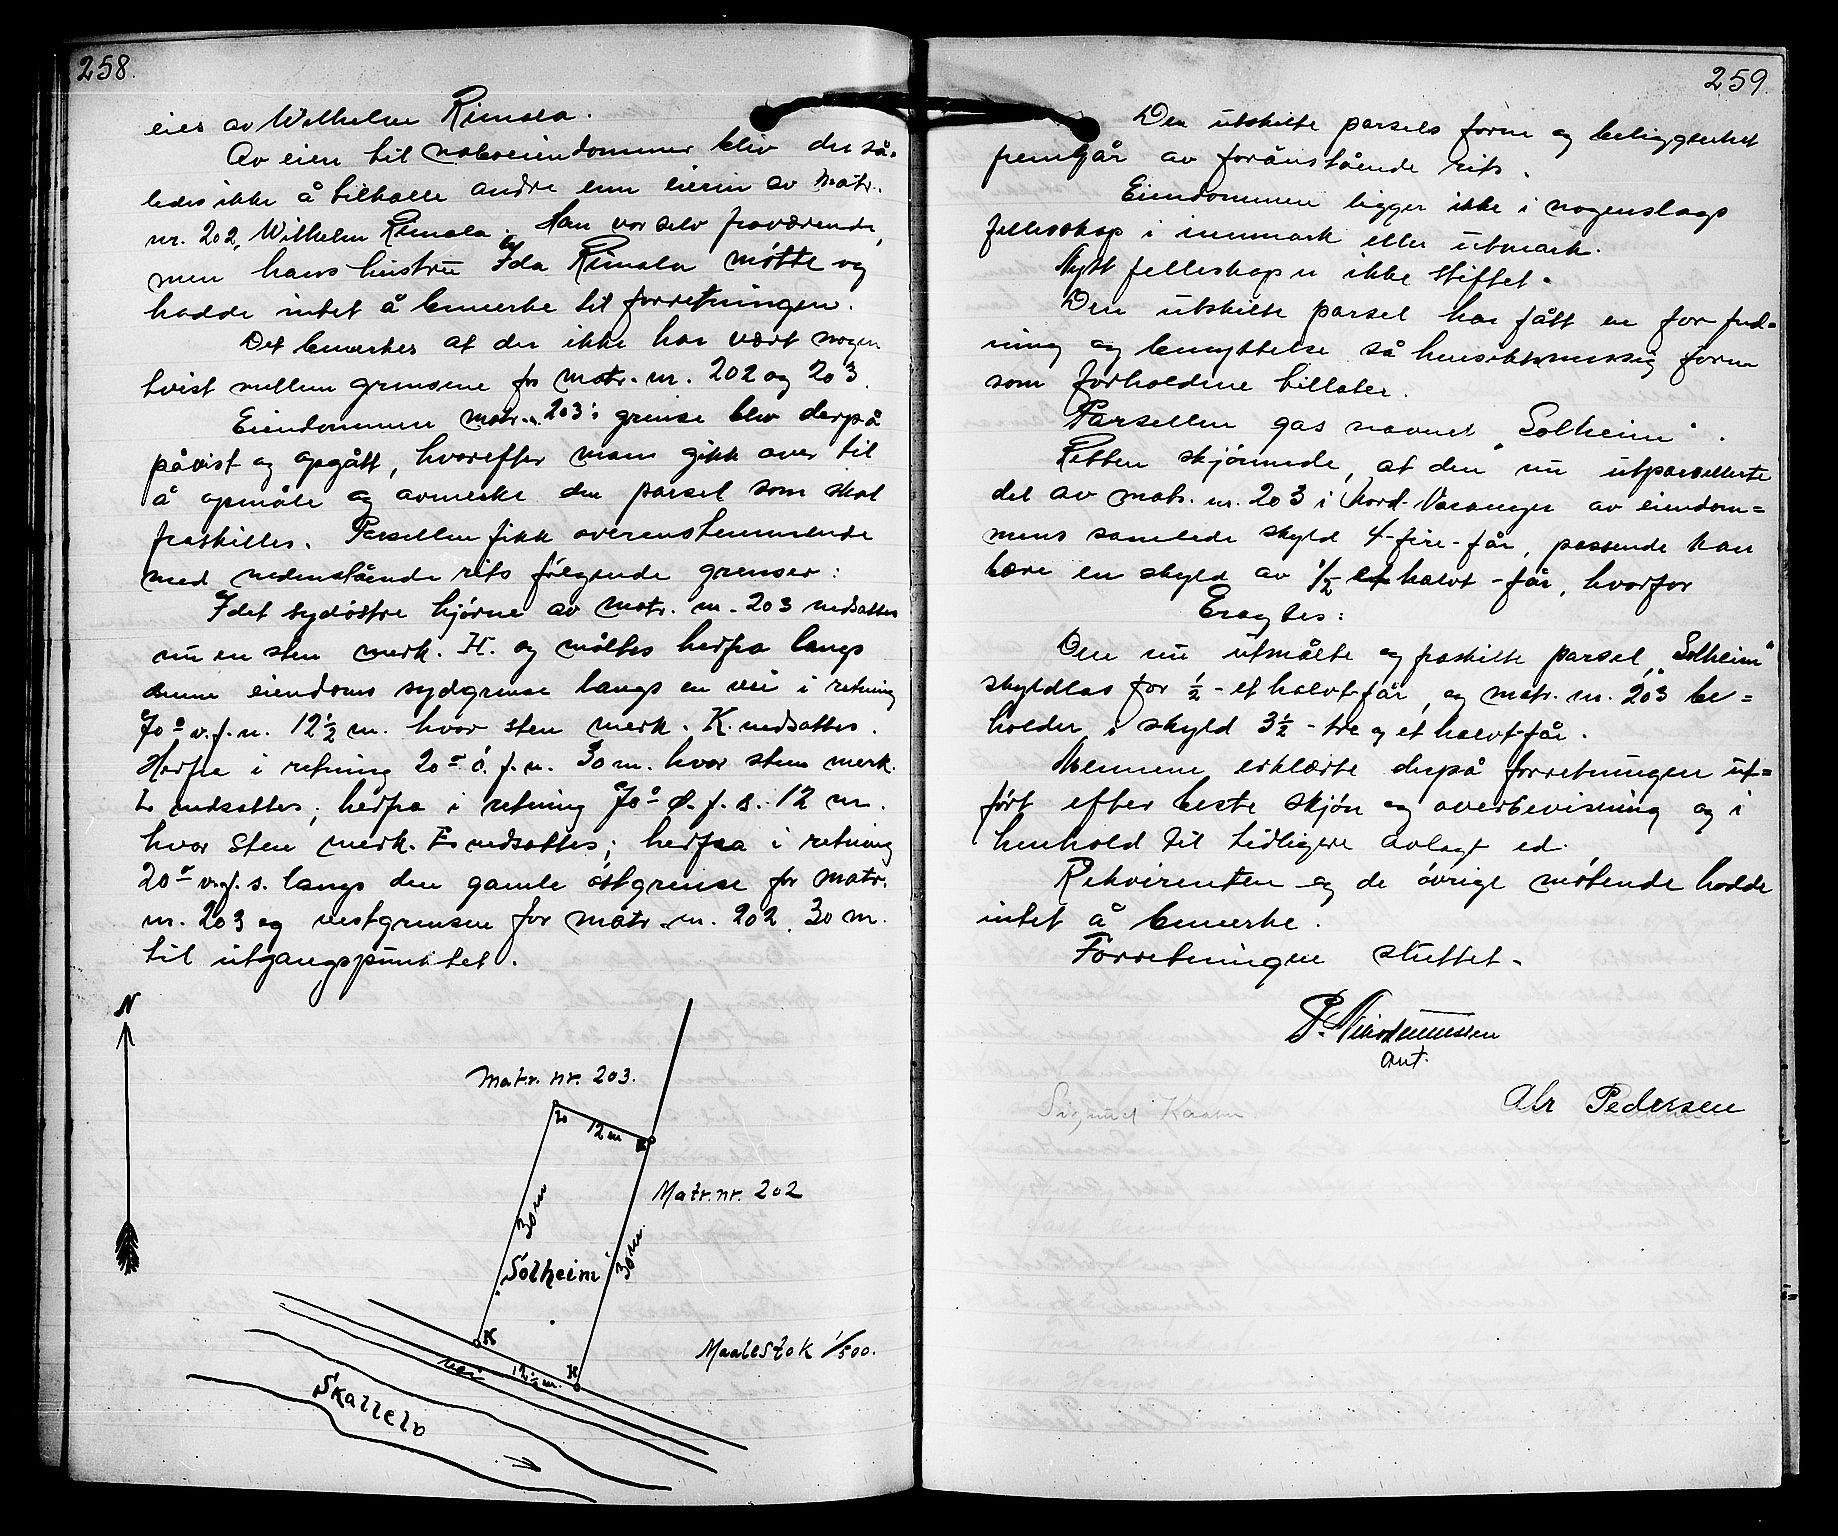 258.
eies av Wilhelm Rimala.
Av eien til naboeiendommer blev der så-
ledes ikke å tilkalle andre enn eieren av matr.
nr. 202, Wilhelm Rimala. Han var selv fraværende,
men hans hustru Ida Rimala møtte og
hadde intet å bemerke til forretningen.
Det bemerkes at der ikke har vært nogen
tvist mellem grensene for matr. nr. 202 og 203.
Eiendommen matr. n. 203's grense blev derpå
påvist og opgått, hvorefter man gikk over til
å opmåle og avmerke den parsel som skal
fraskilles. Parsellen fikk overensstemmende
med nedenstående rits følgende grenser:
I det sydøstre hjørne av matr. nr. 203 nedsattes
nu en sten merk. H. og måltes herfra langs
denne eiendoms sydgrense langs en vei i retning
70° v.f.n. 12½ m. hvor sten merk. K. nedsattes.
Herfra i retning 20° ö.f.n. 30 m. hvor sten merk.
L nedsattes; herfra i retning 70° ø.f.s. 12 m.
hvor sten merk. E nedsattes; herfra i retning
20° v.f.s. langs den gamle østgrense for matr.
nr. 203 og vestgrensen for matr. nr. 202. 30 m.
til utgangspunktet.
N
Matr. nr. 203.
12 m
Matr. nr. 202
30 m
30 m
"Solheim"
K
H
Maalestok 1/500.
vei
12½ m.
Skallelv
259.
Den utskilte parsels form og beliggenhet
fremgår av foranstående rits.
Eiendommen ligger ikke i nogenslags
fellesskap i innmark eller utmark.
Nytt felleskap er ikke stiftet.
Den utskilte parsel har fått en for fred-
ning og benyttelse så hensiktsmessig form
som forholdene tillater.
Parsellen gas navnet "Solheim".
Retten skjønnede, at den nu utparsellerte
del av matr. nr. 203 i Nord-Varanger av eiendom-
mens samlede skyld 4-fire-får, passende kan
bære en skyld av 1/2 et halvt-får, hvorfor
Eragtes:
Den nu utmålte og fraskilte parsel, "Solheim"
skyldlas for ½-et halvt-får, og matr. nr. 203 be-
holder i skyld 3½-tre og et halvt-får.
Mennene erklærte derpå forretningen ut-
ført efter beste skjøn og overbevisning og i
henhold til tidligere avlagt ed.
Rekvirenten og de øvrige møtende hadde
intet å bemerke.
Forretningen sluttet.
Ant.
Sigurd
Alr Pedersen